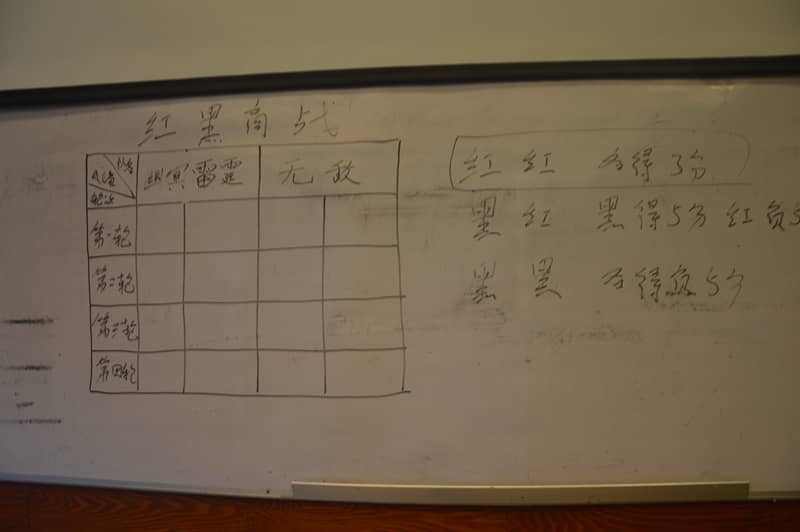 红黑商战
雷霆 无敌
第一轮
第二轮
第三轮
第四轮
红 红 各得3分
黑 红 黑得5分 红负5
黑 黑 各得负5分